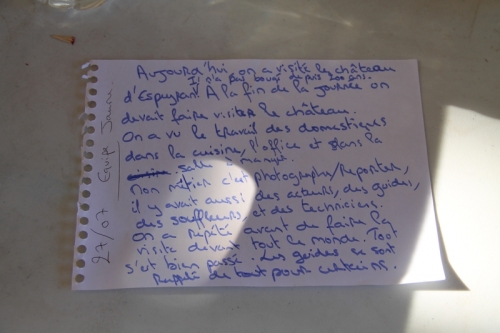 27/07 Equipe Jaune
Aujourd'hui on a visité le château
Il n'a pas bougé depuis 200 ans.
d'Espeyran. A la fin de la journée on
devait faire visiter le château.
On a vu le travail des domestiques
dans la cuisine, l'office et dans la
salle à manger.
Mon métier c'est photographe/Reporter,
il y avait aussi des acteurs, des guides,
des souffleurs et des techniciens.
On a répété avant de faire la
visite devant tout le monde. Tout
s'est bien passé. Les guides se sont
rappelé de tout pour certains.